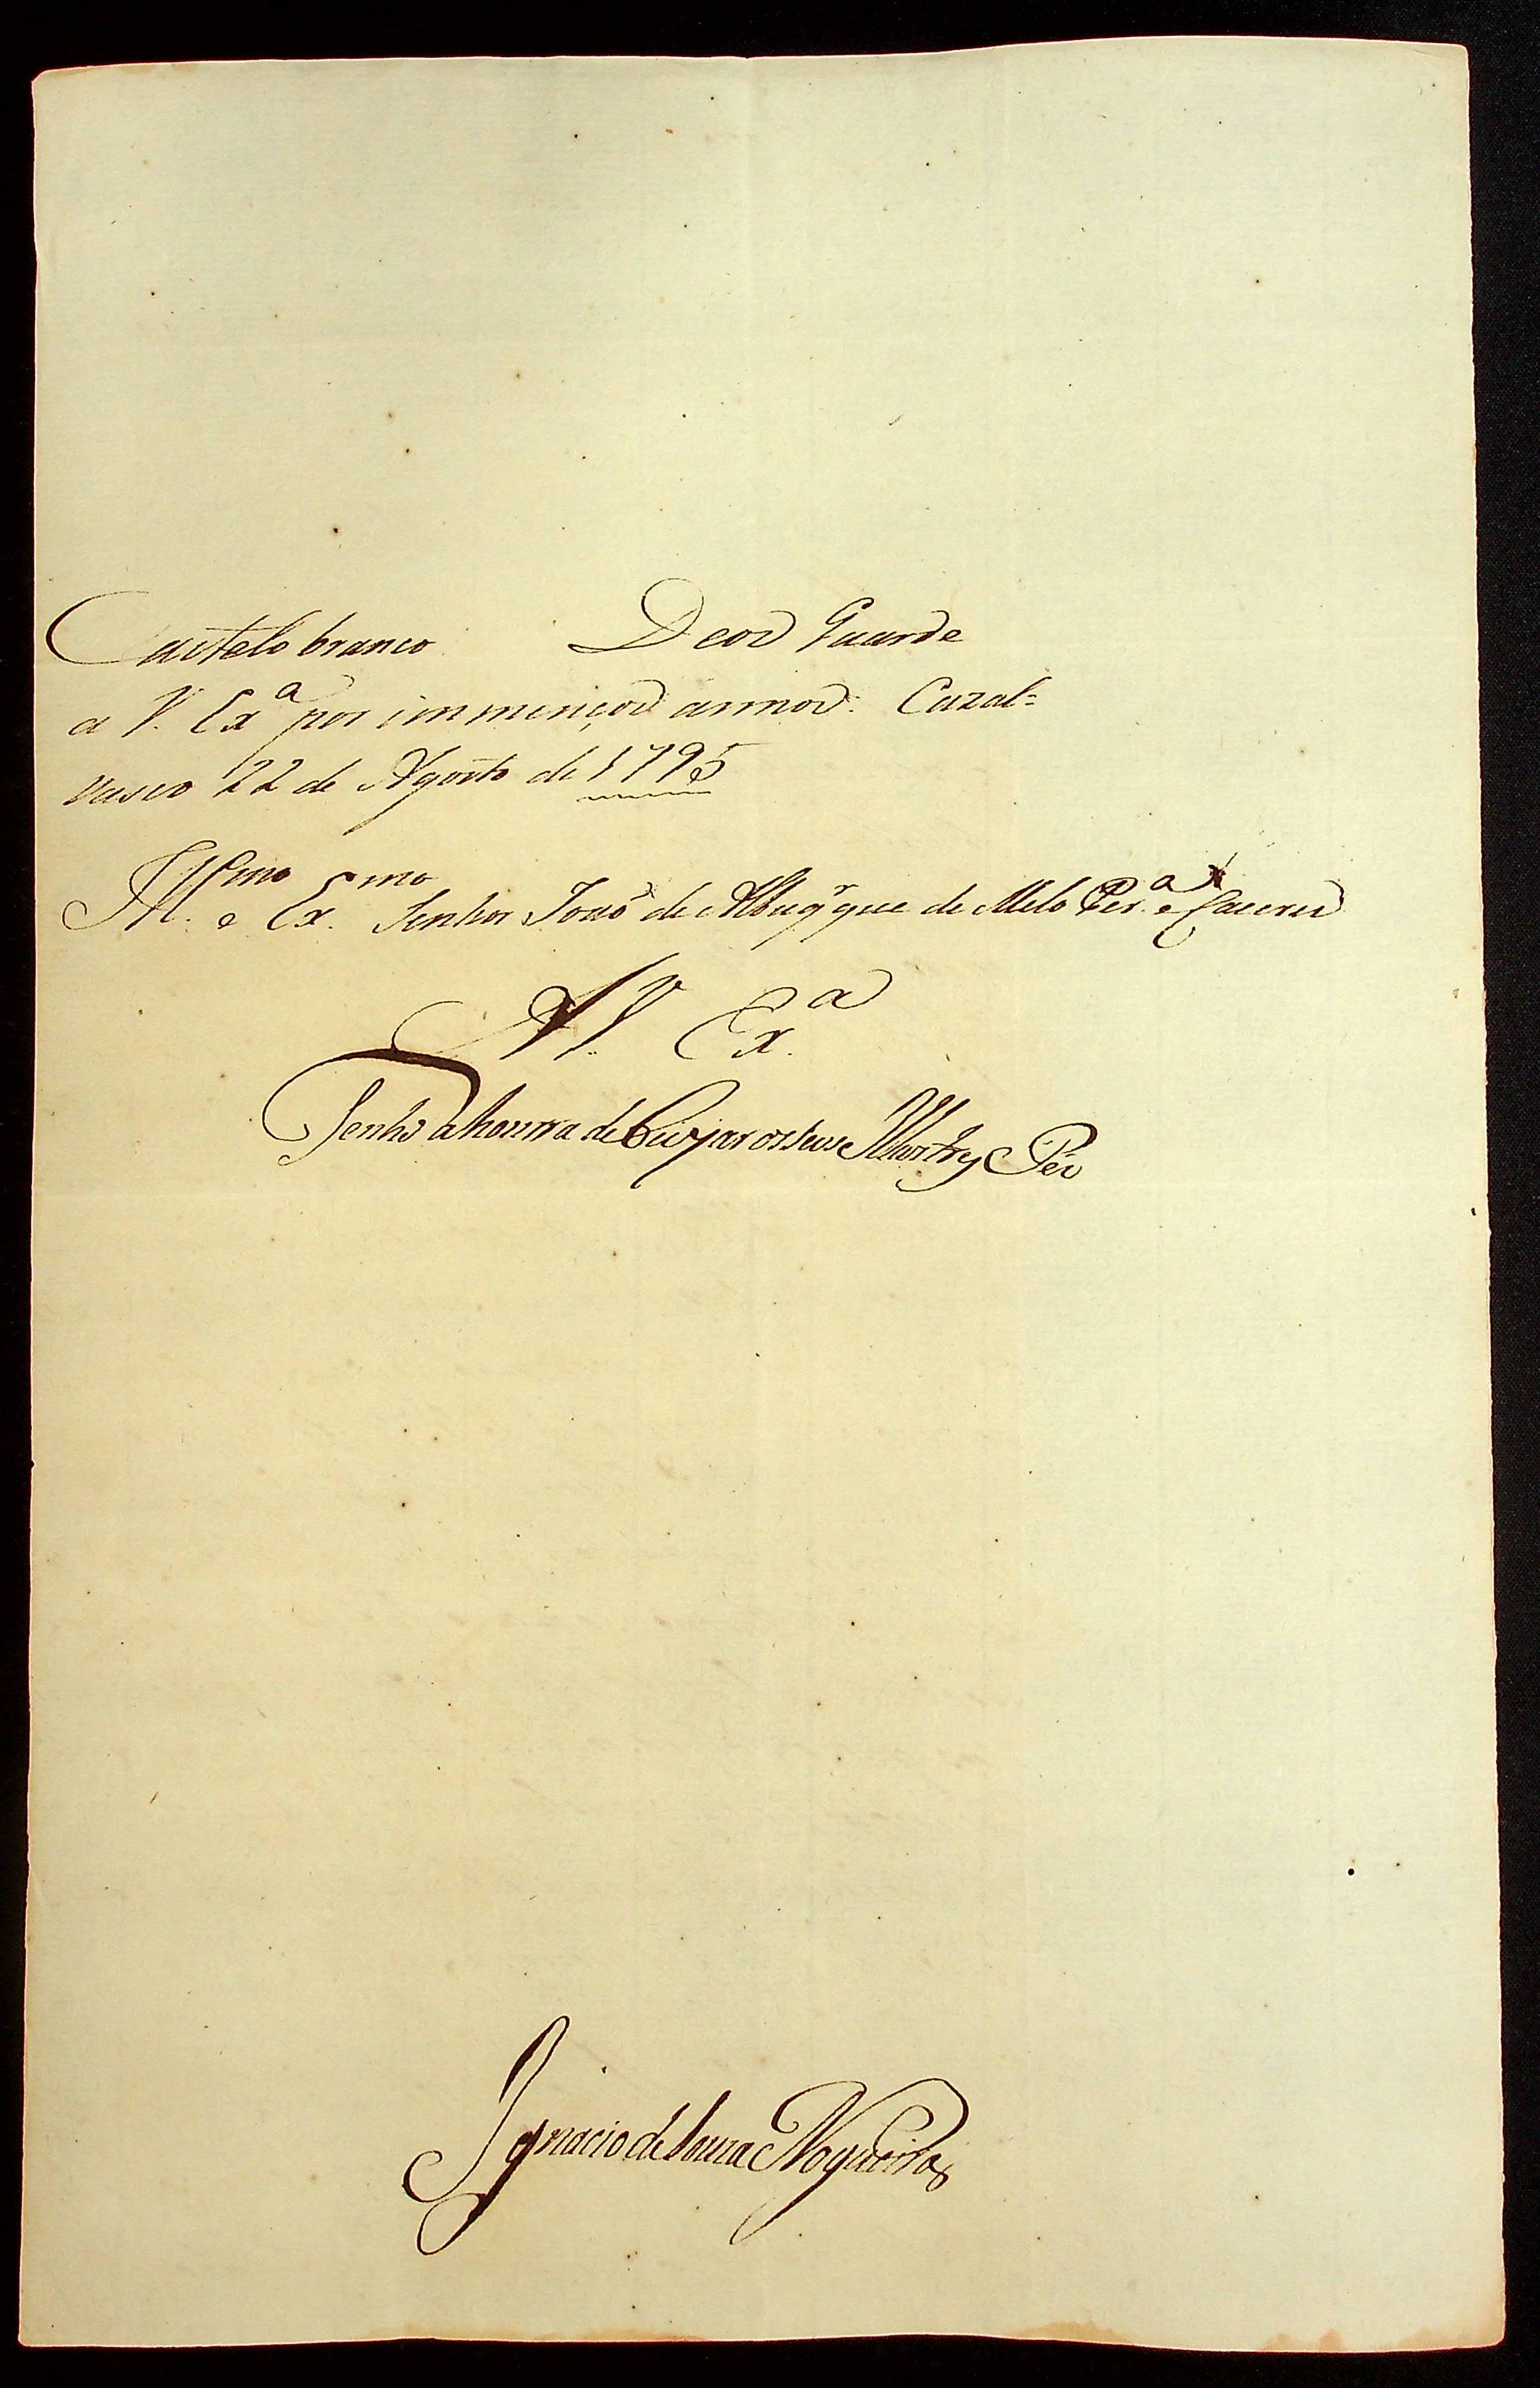 Castelo branco. Deos Guarde
a V. Exª por immenços annos. Cazal=
vasco 22 de Agosto de 1795
Illmo. e Exmo. Senhor Joaõ de Albuqrque de Melo Perª e Caceres
A V. Exª.
Tenho a honrra de Beijar os seus Illustres Pés
Ignacio de Souza Nogueira